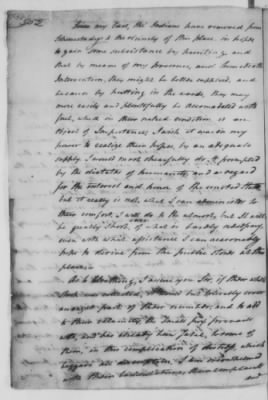 502
Since my last, the Indians have removed from
Schenectady to the vicinity of this place in hopes
to gain some subsistance by hunting, and
that by means of my presence, and immediate
Intercession, they might be better supplied, and
because by hutting in the woods, they may
more easily and plentifully be accomodated with
fuel, which in their naked condition is an
object of Importance; was it within my
power to realize their hopes, by an adequate
supply I would most chearfully do it, prompted
by the dictates of humanity, and a regard
for the interest and honor of the United States
but it really is not, what I can administer to
their comfort I will do to the utmost, but it will
be greatly short, of what is barely necessary,
even with what assistance I can reasonably
hope to derive from the public stores at this
place
As to Cloathing, I assure you Sir, if their whole
Stock was collected, it would but
one part of their number, and to add
to their calamity, the Small pox prevails
and has already been fatal to some of
them, in this complication of distress, which
beggars all description, I am
with their
and